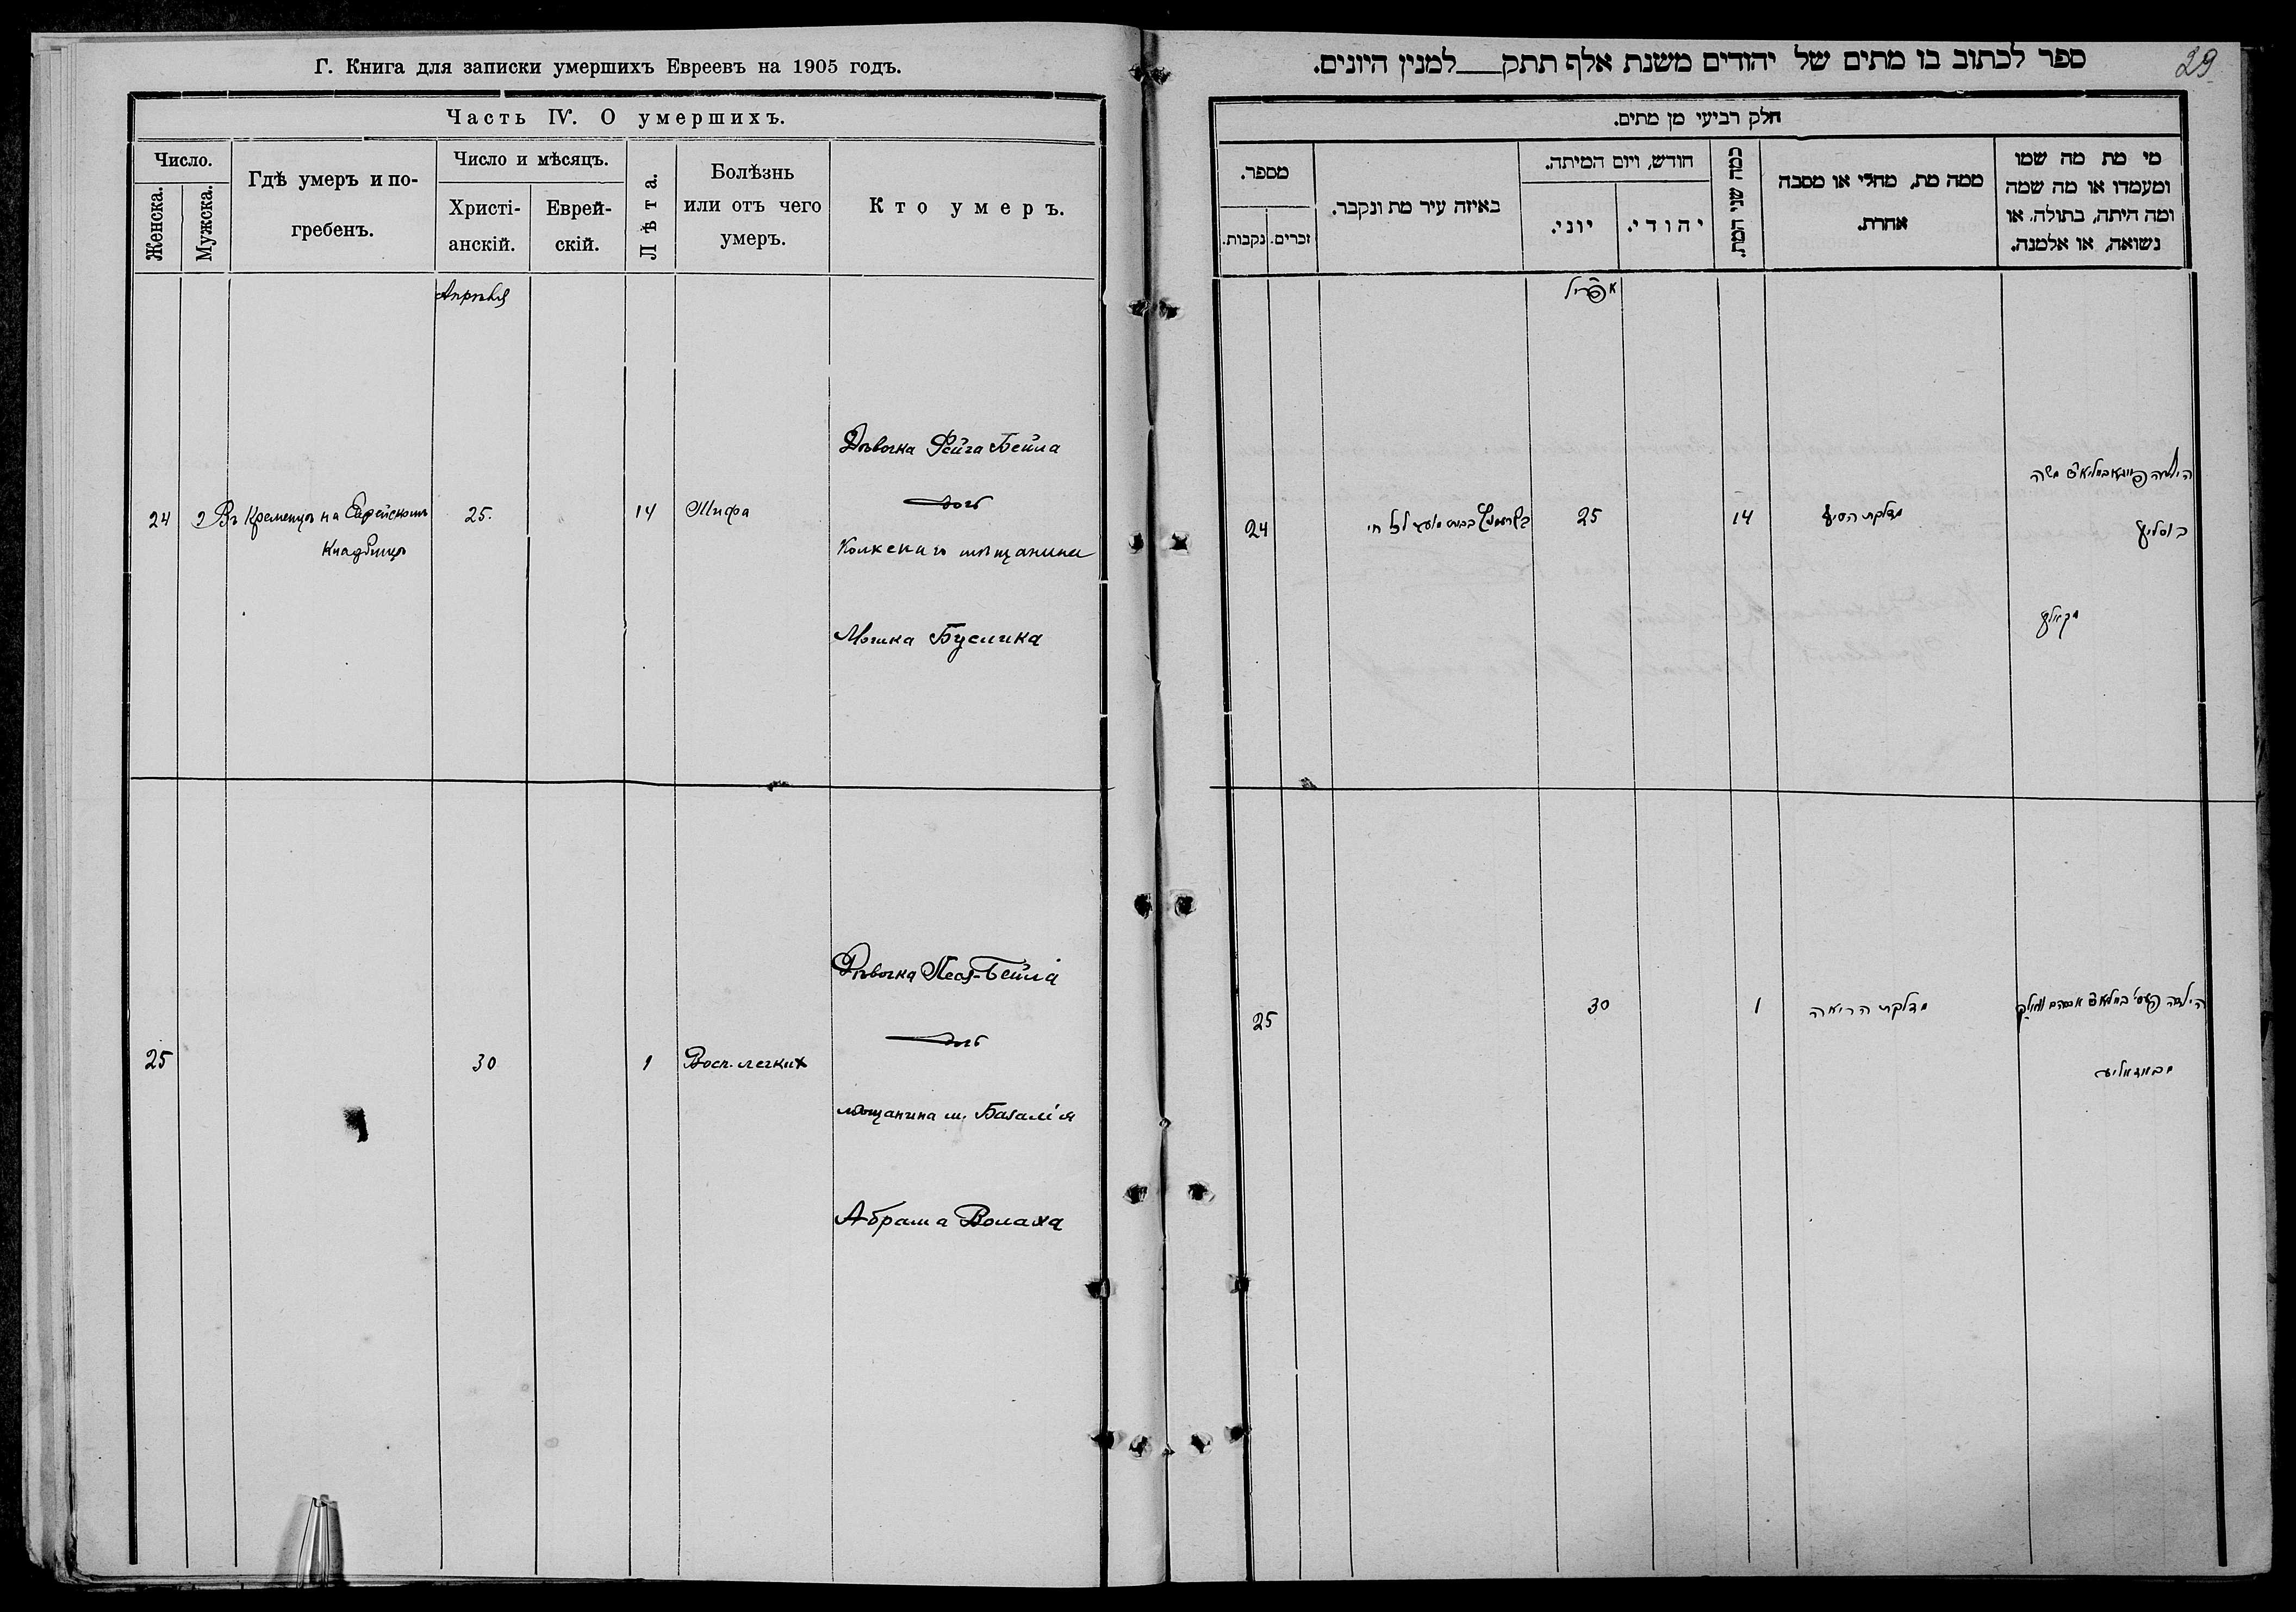 Г. Книга для записки умершихъ Евреевъ на 1905 годъ.
Часть IV. О умершихъ.
Число.
Женска.
Мужска.
Гдѣ умеръ и по-
гребенъ.
Число и мѣсяцъ.
Христі-
анскій.
Еврей-
скій.
Лѣта.
Болѣзнь
или отъ чего
умеръ.
Кто умеръ.
Апрѣля
Дѣвочка Фейга Бейла
дочь
24 Въ Кременцѣ на Еврейскомъ 25. 14 Тифа
Кладбищѣ
Колкскаго мѣщанина
Мошка Буслика
Дѣвочка Песя-Бейла
дочь
25 30 1 Восп. легких
мѣщанина м. Базалія
Абрама Волаха
29
ספר לכתוב בו מתים של יהודים משנת אלף תתק למנין היונים.
חלק רביעי מן מתים.
מספר.
נקבות.
זכרים.
באיזה עיר מת ונקבר.
חודש, ויום המיתה.
יוני.
יהודי.
כמה שני המת.
ממה מת, מחלי או מסבה
אחרת.
מי מת מה שמו
ומעמדו או מה שמה
ומה היתה, בתולה, או
נשואה, או אלמנה.
אפריל
הילדה משה
24 25 14
25 30 1 מדלקת הריאה
הילדה אברהם